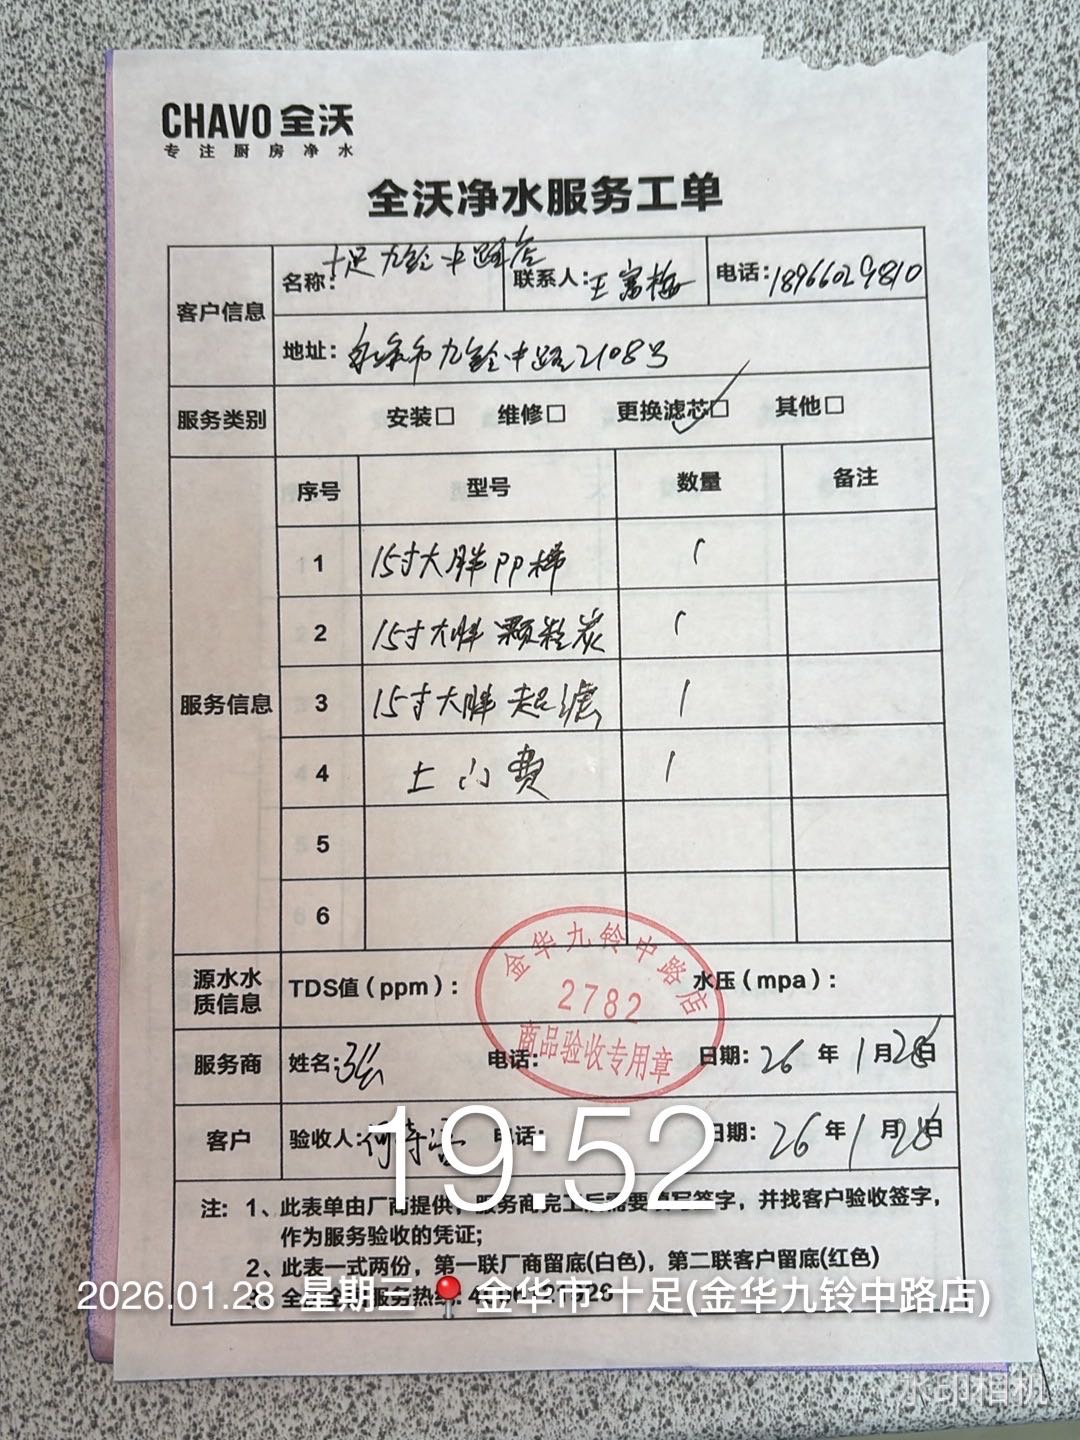 CHAVO 全沃
专注厨房净水
全沃净水服务工单
客户信息
名称: 十足九铃中路店 联系人: 王富梅 电话: 18966029810
地址: 永康市九铃中路2108号
服务类别 安装□ 维修□ 更换滤芯□ ✓ 其他□
服务信息
序号 型号 数量 备注
1 15寸大胖PP棉 1
2 15寸大胖颗粒炭 1
3 15寸大胖超滤 1
4 上门费 1
5
6
源水水质信息 TDS值(ppm): 水压(mpa):
金华九铃中路店
2782
商品验收专用章
服务商 姓名: 电话: 日期: 26年1月28日
客户 验收人: 电话: 日期: 26年1月28日
19:52
注: 1、此表单由厂商提供,服务商完工后需要填写签字,并找客户验收签字,
作为服务验收的凭证;
2、此表一式两份,第一联厂商留底(白色),第二联客户留底(红色)
2026.01.28 星期三 金华市·十足(金华九铃中路店)
水印相机